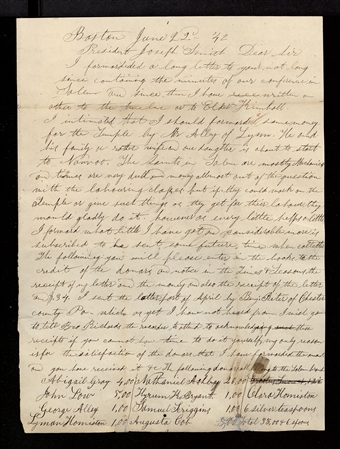 Boston June 22d /42
President Joseph Smith Dear Sir
I forwarded a long letter to you not long
since containing the minutes of our conference in
Salem Since then I have written an
other to the twelve or to Elder Kimball
I intended that I should forward some money
for the Temple by Mr Alley of Lynn. He and
his family or rather wife and one daughter is about to start
to Nauvoo. The Saints in Salem are mostly Mechanics
and times are very dull and money allmost out of the question
with the labouring class but if they could work on the
Temple or give such things as they get for their labour they
would gladly do it. however as every little helps a little
I forward what little I have got and considerable more is
subscribed to be sent some future time when collected
The following you will please enter in the books to the
credit of the donors and notice in the Times & Seasons the
receipt of my letter and the money and also the receipt of the letter
and $4. I sent the latter part of April by Benj
County Pa. which as yet I have not heard from. I would go
to tell Bro. Richards the recorder to attend to acknowledging the
receipts if you cannot have time to do it yourself, my only reason
is for the satisfaction of the donors that I have forwarded the and
you have received it &c. The following donations to the Salem branch
Abigail Gray 4,00 Nathaniel Ashby 20.00
John Low 5,00 Hyrum K Bryant 1,00 Clara Homiston
George Alley 1,00 Samuel Friggins 1,00 6 silver teaspoons
Lyman Homiston 1,00 Augusta Cob 38,00 & 6 spoons